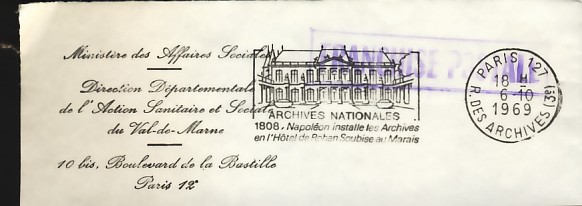 Ministère des Affaires Sociales
Direction Départementale
de l'Action Sanitaire et Sociale
du Val-de-Marne
10 bis, Boulevard de la Bastille
Paris 12e
FRANCHISE POSTALE
ARCHIVES NATIONALES
1808. Napoléon installe les Archives
en l'Hôtel de Rohan Soubise au Marais
PARIS 127
18 H
6-10
1969
R. DES ARCHIVES (3e)